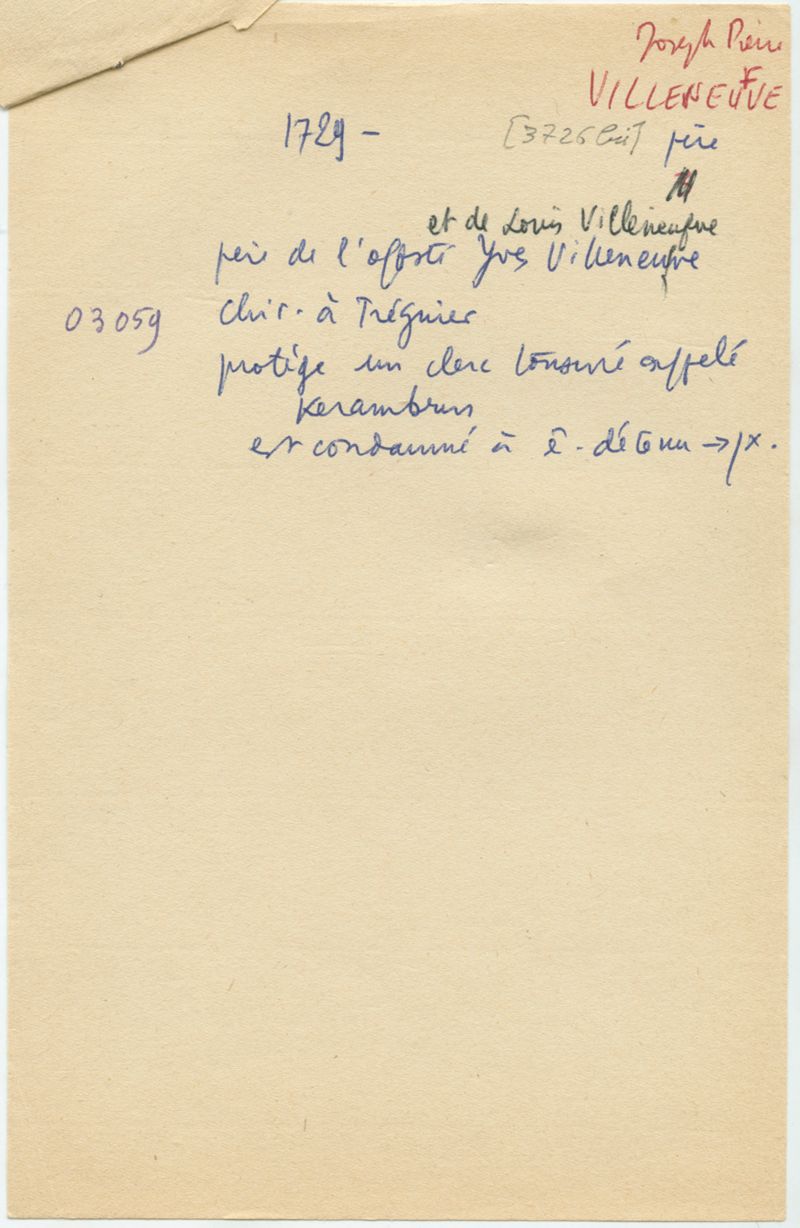 Joseph Pierre
VILLENEUFVE
1729 –
[3726 bis] père
et de Louis Villeneufve
père de l'aposté Yves Villeneufve
03059 chir. à Tréguier
protège un clerc tonsuré appelé
Kerambrun
est condamné à ê. détenu → px.